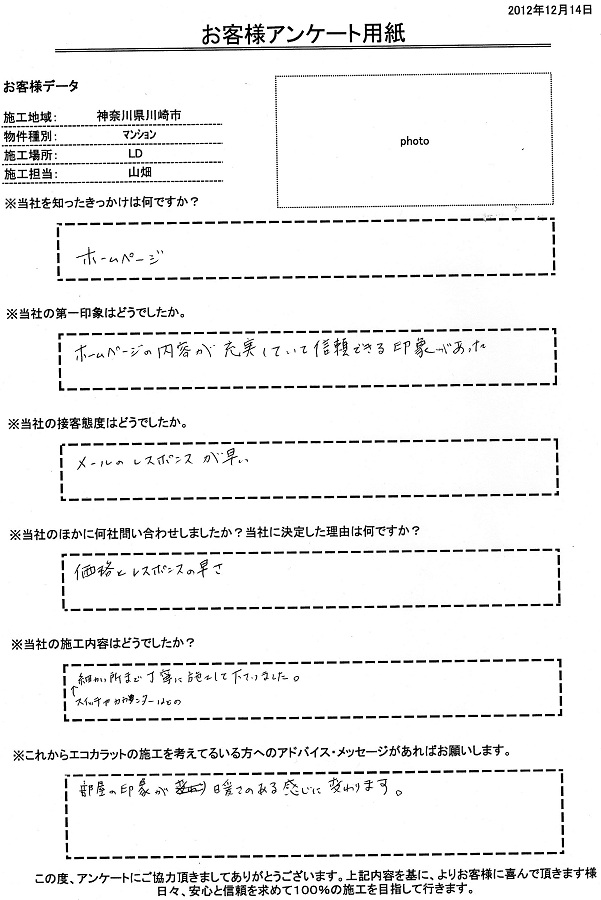 2012年12月14日
お客様アンケート用紙
お客様データ
施工地域: 神奈川県川崎市
物件種別: マンション
施工場所: LD
施工担当: 山畑
photo
※当社を知ったきっかけは何ですか？
ホームページ
※当社の第一印象はどうでしたか。
ホームページの内容が充実していて信頼できる印象があった
※当社の接客態度はどうでしたか。
メールのレスポンスが早い
※当社のほかに何社問い合わせしましたか？当社に決定した理由は何ですか？
価格とレスポンスの早さ
※当社の施工内容はどうでしたか？
細かい所まで丁寧に施工して下さいました。
↑スイッチやカウンターなどの
※これからエコカラットの施工を考えてるいる方へのアドバイス・メッセージがあればお願いします。
部屋の印象が 暖さのある感じに変わります。
この度、アンケートにご協力頂きましてありがとうございます。上記内容を基に、よりお客様に喜んで頂きます様
日々、安心と信頼を求めて100%の施工を目指して行きます。